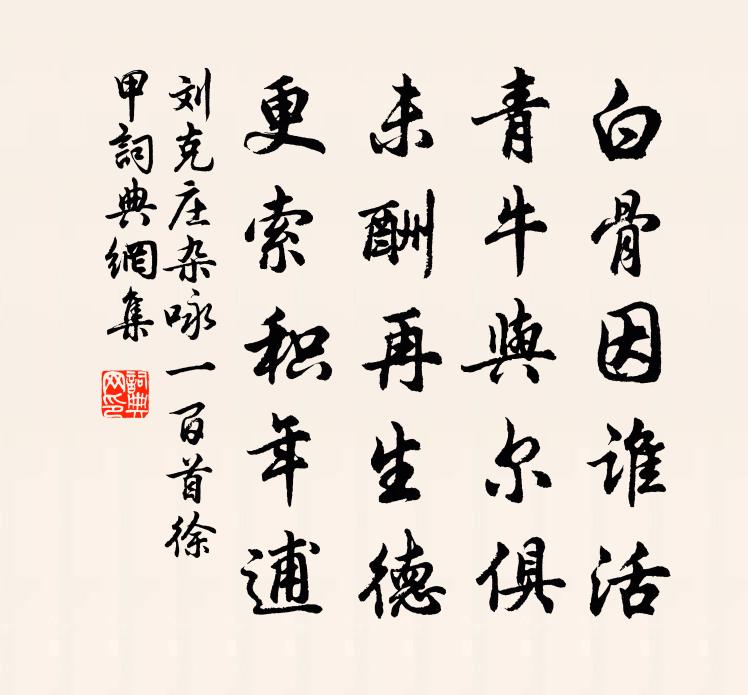 白骨因谁活
青牛與尔俱
未酬再生德
更索积年逋
刘克庄杂咏一百首徐
甲詞典網集
詞典網印